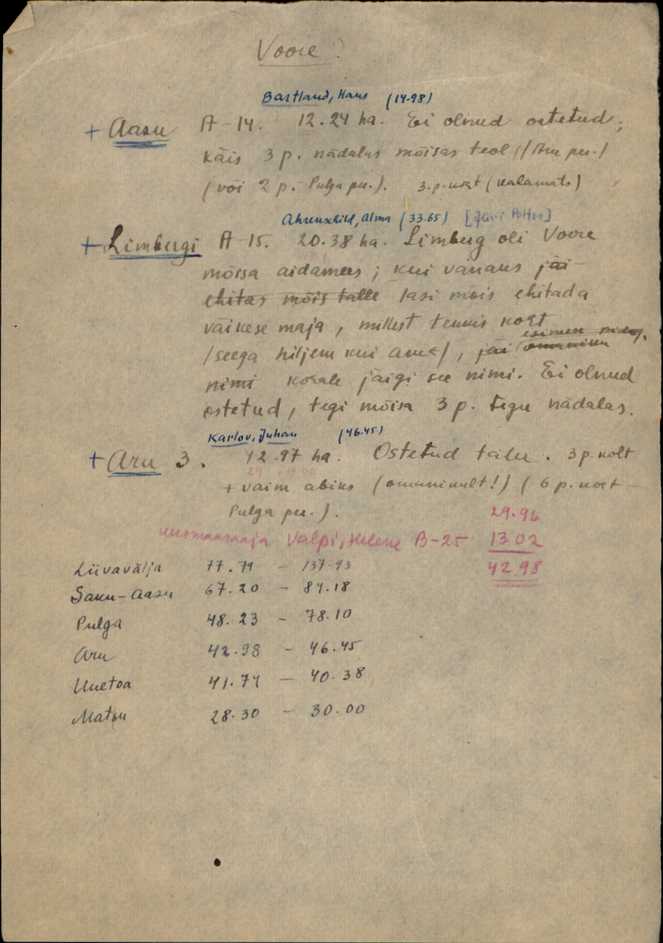 Voore?
Bartland, Hans (14.98)
+ Aasu A-14. 12.24 ha. Ei olnud ostetud,
käis 3 p. nädalas mõisas teol, (Aru pu.)
(või 2 p. Pulga pu.). 3.p.nört (kalamats)
Ahrenskild, Alma (33.65)
+ Limbergi A-15. 20.38 ha. Limberg oli Voore
mõisa aidamees; kui vanaus jäi
ehitas mõis talle lasi mõis ehitada
väikese maja, millest tennis koht
(seega hiljem kui Aru), jäi esimese
nimi kohale jäigi see nimi. Ei olnud
ostetud, tegi mõisa 3 p. tegu nädalas.
Karlov, Juhan (46.45)
+ Aru 3. 12.97 ha. Ostetud talu. 3 p. nolt
+ vaim abiks (omanikult!) (6 p.
Pulga pu.). 29.96
uusmaasaaja Valpi, Helene B-25 13.02
42.98
Liivavälja 77.71 - 137.93
Saku-Aasu 67.20 - 84.18
Pulga 48.23 - 78.10
Aru 42.98 - 46.45
Unetoa 41.71 - 40.38
Matsu 28.30 - 30.00